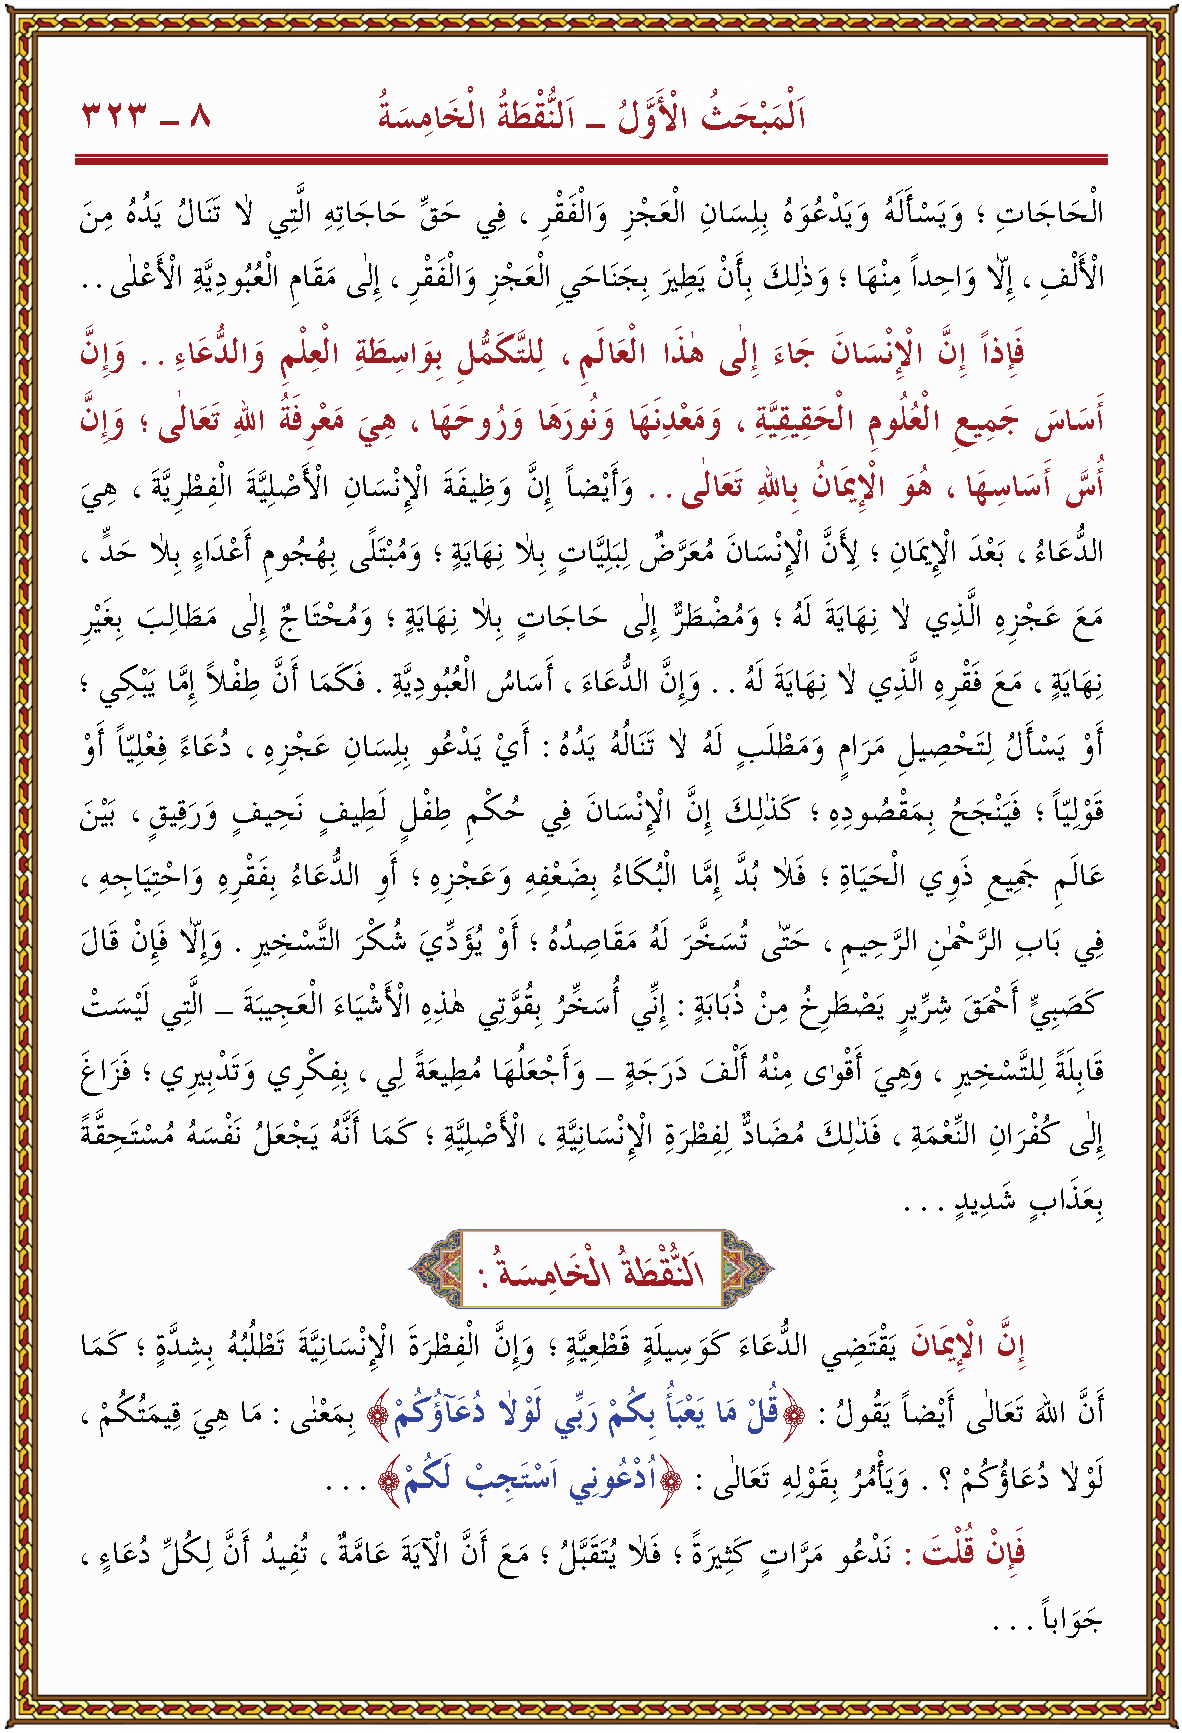 اَلْمَبْحَثُ الْأَوَّلُ ـ اَلنُّقْطَةُ الْخَامِسَةُ ٨ ـ ٣٢٣
الْحَاجَاتِ ؛ وَيَسْأَلَهُ وَيَدْعُوَهُ بِلِسَانِ الْعَجْزِ وَالْفَقْرِ ، فِي حَقِّ حَاجَاتِهِ الَّتِي لَا تَنَالُ يَدُهُ مِنَ
الْأَلْفِ ، إِلَّا وَاحِداً مِنْهَا ؛ وَذٰلِكَ بِأَنْ يَطِيَر بِجَنَاحَيِ الْعَجْزِ وَالْفَقْرِ ، إِلَى مَقَامِ الْعُبُودِيَّةِ الْأَعْلَى . .
فَإِذاً إِنَّ الْإِنْسَانَ جَاءَ إِلَى هٰذَا الْعَالَمِ ، لِلتَّكَمُّلِ بِوَاسِطَةِ الْعِلْمِ وَالدُّعَاءِ . . وَإِنَّ
أَسَاسَ جَمِيعِ الْعُلُومِ الْحَقِيقِيَّةِ ، وَمَعْدَنَهَا وَنُورَهَا وَرُوحَهَا ، هِيَ مَعْرِفَةُ اللهِ تَعَالَى ؛ وَإِنَّ
أُسَّ أَسَاسِهَا ، هُوَ الْإِيمَانُ بِاللهِ تَعَالَى . . وَأَيْضاً إِنَّ وَظِيفَةَ الْإِنْسَانِ الْأَصْلِيَّةَ الْفِطْرِيَّةَ ، هِيَ
الدُّعَاءُ ، بَعْدَ الْإِيمَانِ ؛ لِأَنَّ الْإِنْسَانَ مُعَرَّضٌ لِبَلِيَّاتٍ بِلَا نِهَايَةٍ ؛ وَمُبْتَلًى بِهُجُومِ أَعْدَاءٍ بِلَا حَدٍّ ،
مَعَ عَجْزِهِ الَّذِي لَا نِهَايَةَ لَهُ ؛ وَمُضْطَرٌّ إِلَى حَاجَاتٍ بِلَا نِهَايَةٍ ؛ وَمُحْتَاجٌ إِلَى مَطَالِبَ بِغَيْرِ
نِهَايَةٍ ، مَعَ فَقْرِهِ الَّذِي لَا نِهَايَةَ لَهُ . . وَإِنَّ الدُّعَاءَ ، أَسَاسُ الْعُبُودِيَّةِ . فَكَمَا أَنَّ طِفْلاً إِمَّا يَبْكِي ؛
أَوْ يَسْأَلُ لِتَحْصِيلِ مَرَامٍ وَمَطْلَبٍ لَهُ لَا تَنَالُهُ يَدُهُ : أَيْ يَدْعُو بِلِسَانِ عَجْزِهِ ، دُعَاءً فِعْلِيّاً أَوْ
قَوْلِيّاً ؛ فَيَنْجَحُ بِمَقْصُودِهِ ؛ كَذٰلِكَ إِنَّ الْإِنْسَانَ فِي حُكْمِ طِفْلٍ لَطِيفٍ نَحِيفٍ وَرَقِيقٍ ، بَيْنَ
عَالَمِ جَمِيعِ ذَوِي الْحَيَاةِ ؛ فَلَا بُدَّ إِمَّا الْبُكَاءُ بِضَعْفِهِ وَعَجْزِهِ ؛ أَوِ الدُّعَاءُ بِفَقْرِهِ وَاحْتِيَاجِهِ ،
فِي بَابِ الرَّحْمٰنِ الرَّحِيمِ ، حَتَّى تُسَخَّرَ لَهُ مَقَاصِدُهُ ؛ أَوْ يُؤَدِّيَ شُكْرَ التَّسْخِيرِ . وَإِلَّا فَإِنْ قَالَ
كَصَبِيٍّ أَحْمَقَ شِرِّيرٍ يَصْطَرِخُ مِنْ ذُبَابَةٍ : إِنِّي أُسَخِّرُ بِقُوَّتِي هٰذِهِ الْأَشْيَاءَ الْعَجِيبَةَ ـ الَّتِي لَيْسَتْ
قَابِلَةً لِلتَّسْخِيرِ ، وَهِيَ أَقْوَى مِنْهُ أَلْفَ دَرَجَةٍ ـ وَأَجْعَلُهَا مُطِيعَةً لِي ، بِفِكْرِي وَتَدْبِيرِي ؛ فَزَاغَ
إِلَى كُفْرَانِ النِّعْمَةِ ، فَذٰلِكَ مُضَادٌّ لِفِطْرَةِ الْإِنْسَانِيَّةِ ، الْأَصْلِيَّةِ ؛ كَمَا أَنَّهُ يَجْعَلُ نَفْسَهُ مُسْتَحِقَّةً
بِعَذَابٍ شَدِيدٍ . . .
اَلنُّقْطَةُ الْخَامِسَةُ :
إِنَّ الْإِيمَانَ يَقْتَضِي الدُّعَاءَ كَوَسِيلَةٍ قَطْعِيَّةٍ ؛ وَإِنَّ الْفِطْرَةَ الْإِنْسَانِيَّةَ تَطْلُبُهُ بِشِدَّةٍ ؛ كَمَا
أَنَّ اللهَ تَعَالَى أَيْضاً يَقُولُ : ﴿قُلْ مَا يَعْبَأُ بِكُمْ رَبِّي لَوْلَا دُعَآؤُكُمْ﴾ بِمَعْنَى : مَا هِيَ قِيمَتُكُمْ ،
لَوْلَا دُعَاؤُكُمْ ؟ . وَيَأْمُرُ بِقَوْلِهِ تَعَالَى : ﴿اُدْعُونِي اَسْتَجِبْ لَكُمْ﴾ . . .
فَإِنْ قُلْتَ : نَدْعُو مَرَّاتٍ كَثِيَرةً ؛ فَلَا يُتَقَبَّلُ ؛ مَعَ أَنَّ الْآيَةَ عَامَّةٌ ، تُفِيدُ أَنَّ لِكُلِّ دُعَاءٍ ،
جَوَاباً . . .